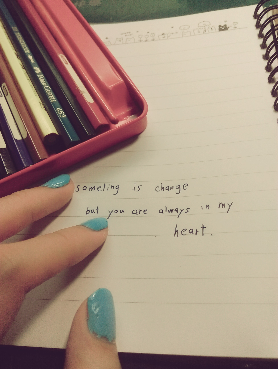 someting is change
but you are always in my
heart.